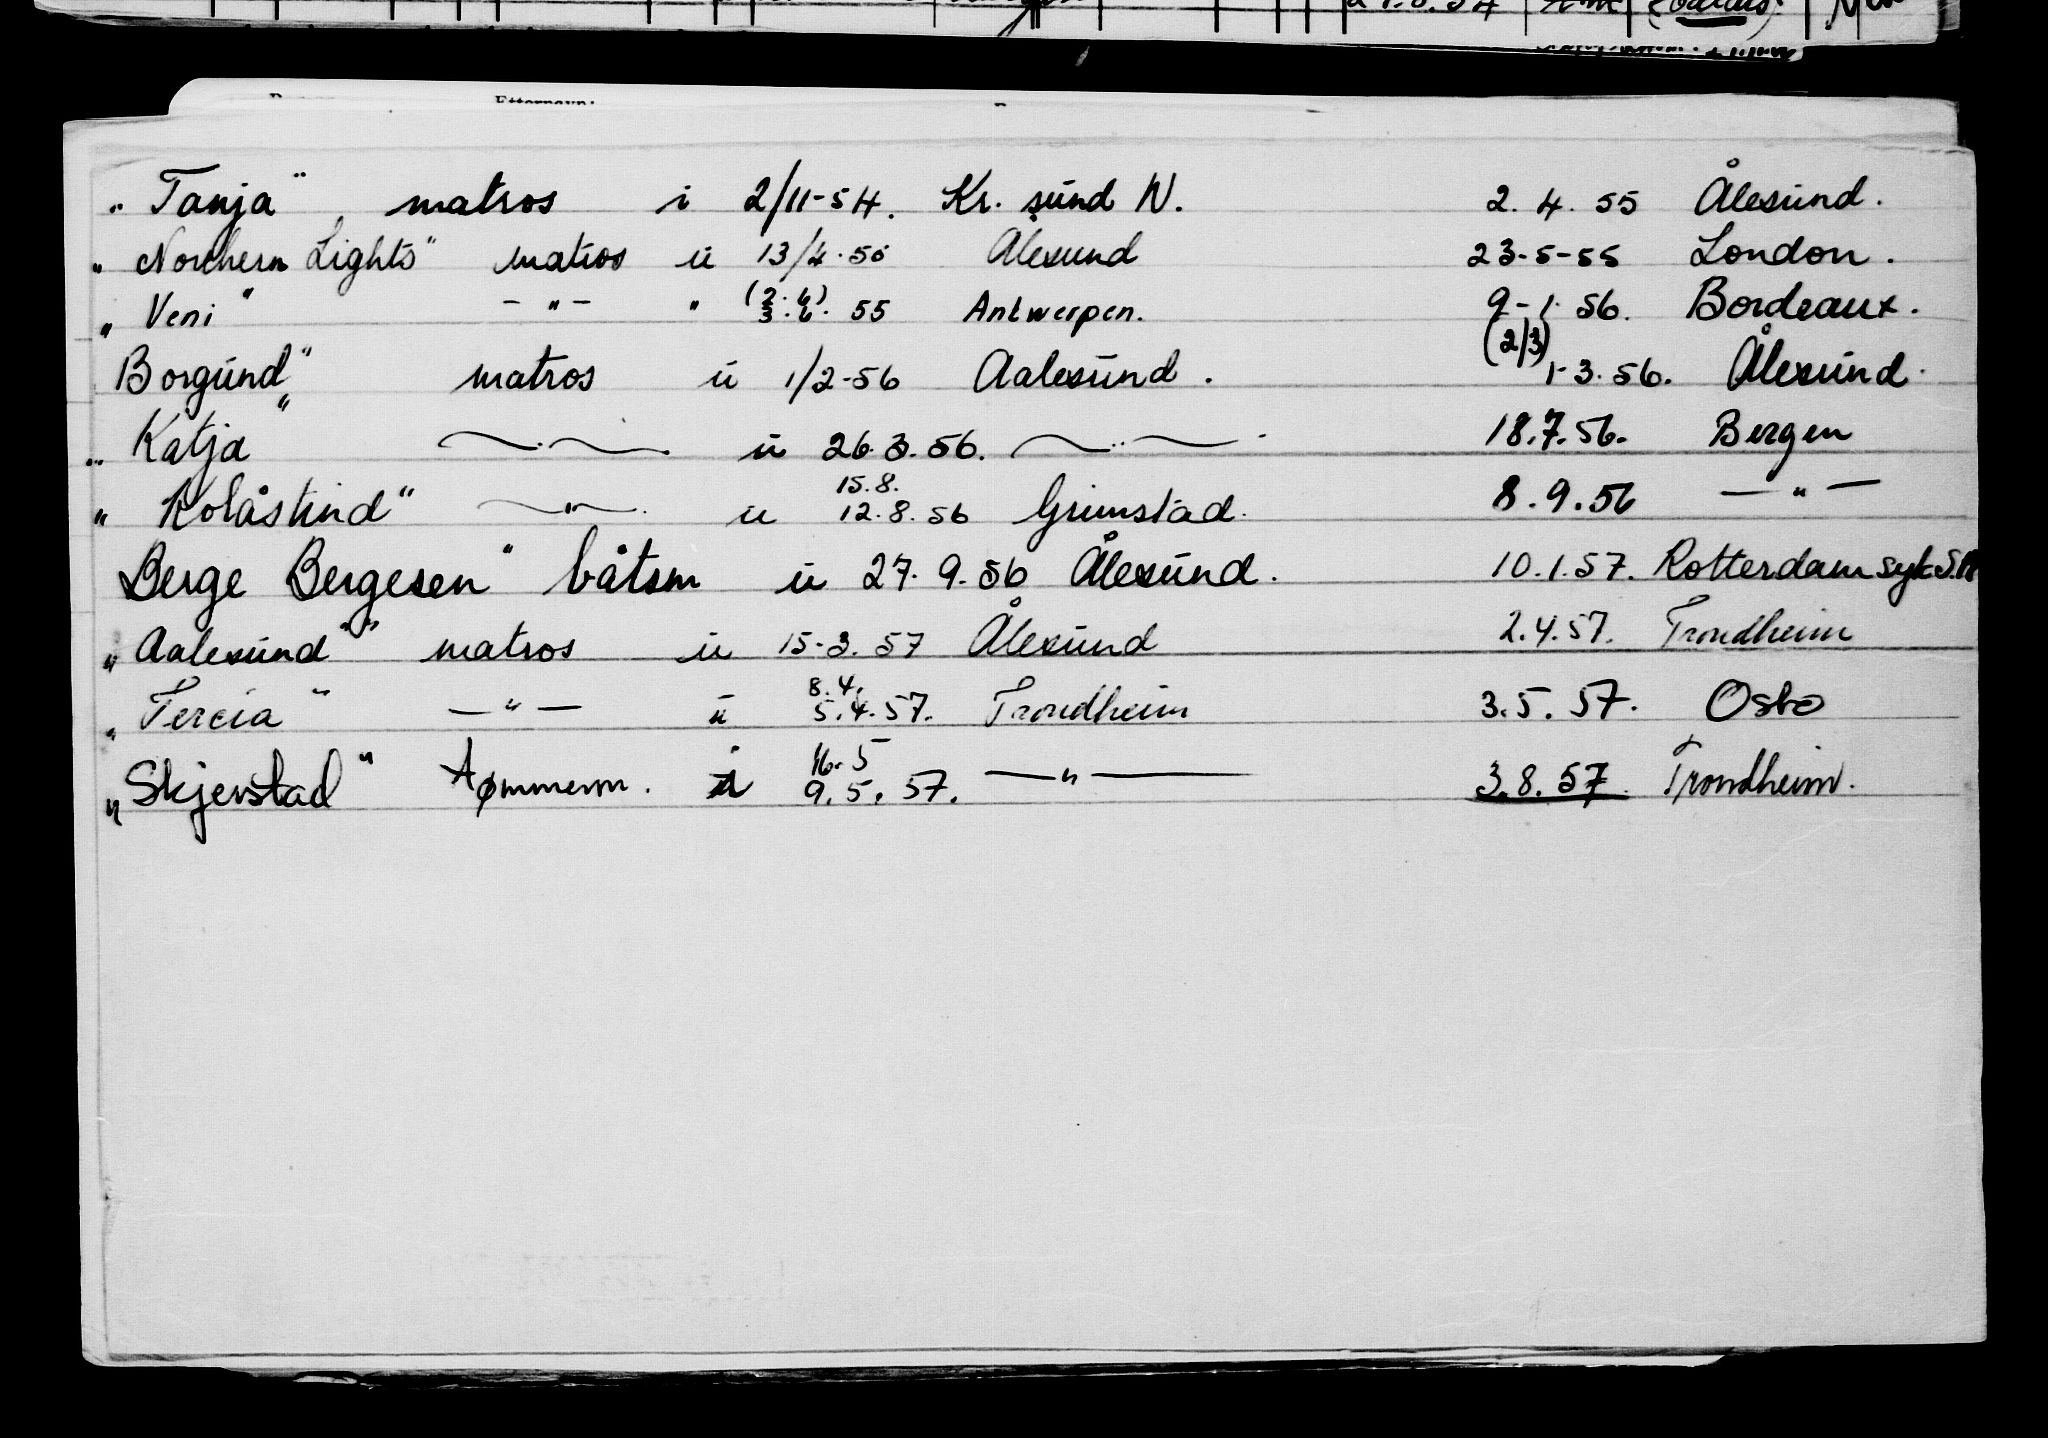 "Tanja" matros i 2/11-54. Kr. sund N. 2.4.55 Ålesund.
"Northern Lights" matros u 13/4.55 Ålesund 23-5-55 London.
"Veni" -"- " (2.6) 3.6. 55 Antwerpen. 9-1-56. Bordeaux.
Borgund" matros u 1/2-56 Aalesund. (2/3) 1-3.56. Ålesund.
"Katja" -"- u 26.3.56. -"- 18.7.56. Bergen
"Kolåstind" -"- u 15.8. 12.8.56 Grimstad. 8.9.56 -"-
Berge Bergesen" båtsm u 27.9.56 Ålesund. 10.1.57. Rotterdam syk
"Aalesund" matros u 15-3.57 Ålesund 2.4.57. Trondheim
"Tercia" -"- u 8.4. 5.4.57. Trondheim 3.5.57. Oslo
"Skjerstad" tømmerm. i 16.5 9.5.57. -"- 3.8.57. Trondheim.